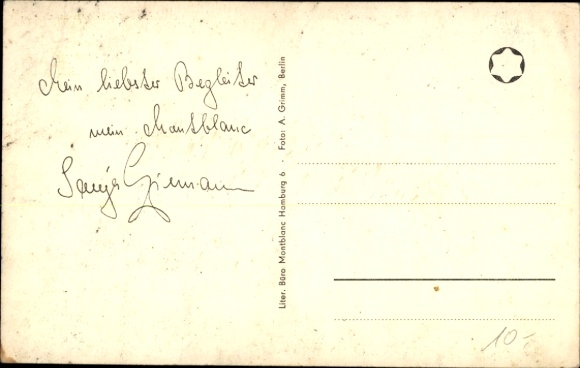 Mein liebster Begleiter
mein Montblanc
Sonja Ziemann
Liter. Büro Montblanc Hamburg 6 · Foto: A. Grimm, Berlin
10,-